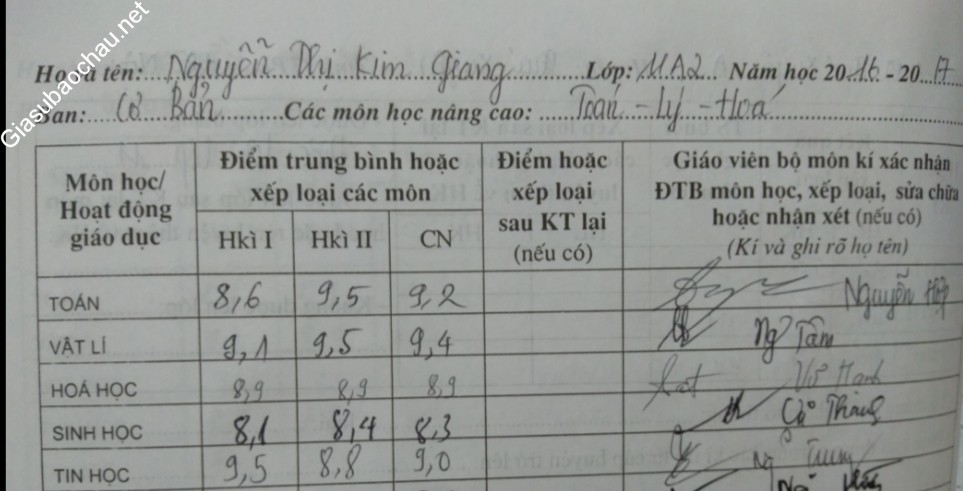 Giasubaochau.net
Họ và tên: Nguyễn Thị Kim Giang Lớp: 11A2 Năm học 2016 - 2017
Ban: Cơ Bản Các môn học nâng cao: Toán - Lý - Hoá
Môn học/
Hoạt động
giáo dục
Điểm trung bình hoặc
xếp loại các môn
Hkì I Hkì II CN
Điểm hoặc
xếp loại
sau KT lại
(nếu có)
Giáo viên bộ môn kí xác nhận
ĐTB môn học, xếp loại, sửa chữa
hoặc nhận xét (nếu có)
(Kí và ghi rõ họ tên)
TOÁN 8,6 9,5 9,2 Nguyễn
VẬT LÍ 9,1 9,5 9,4 Ng Tâm
HOÁ HỌC 8,9 8,9 8,9
SINH HỌC 8,1 8,4 8,3
TIN HỌC 9,5 8,8 9,0